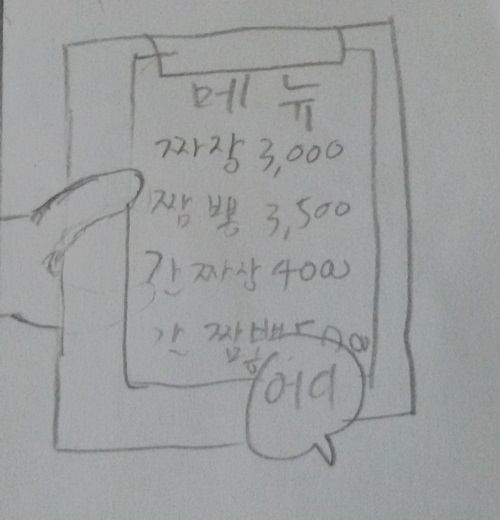 메 뉴
짜장 3,000
짬뽕 3,500
간짜장 4000
간 짬뽕
어디